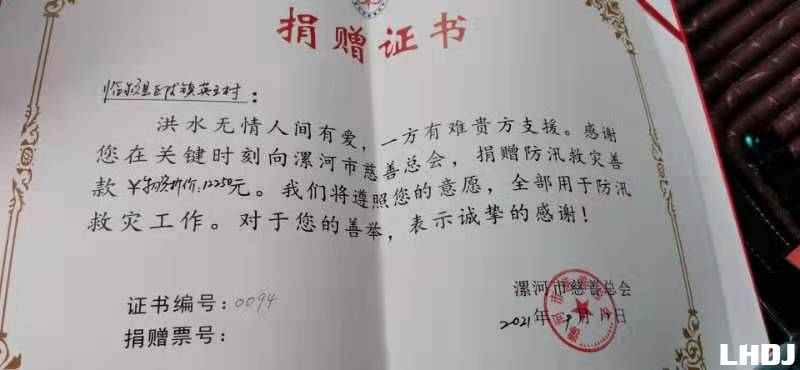 捐赠证书
临颍县王岗镇英王村：
洪水无情人间有爱，一方有难贵方支援。感谢
您在关键时刻向漯河市慈善总会，捐赠防汛救灾善
款￥物资折价:12250元。我们将遵照您的意愿，全部用于防汛
救灾工作。对于您的善举，表示诚挚的感谢！
证书编号：0094
捐赠票号：
漯河市慈善总会
2021年9月17日
LHDJ